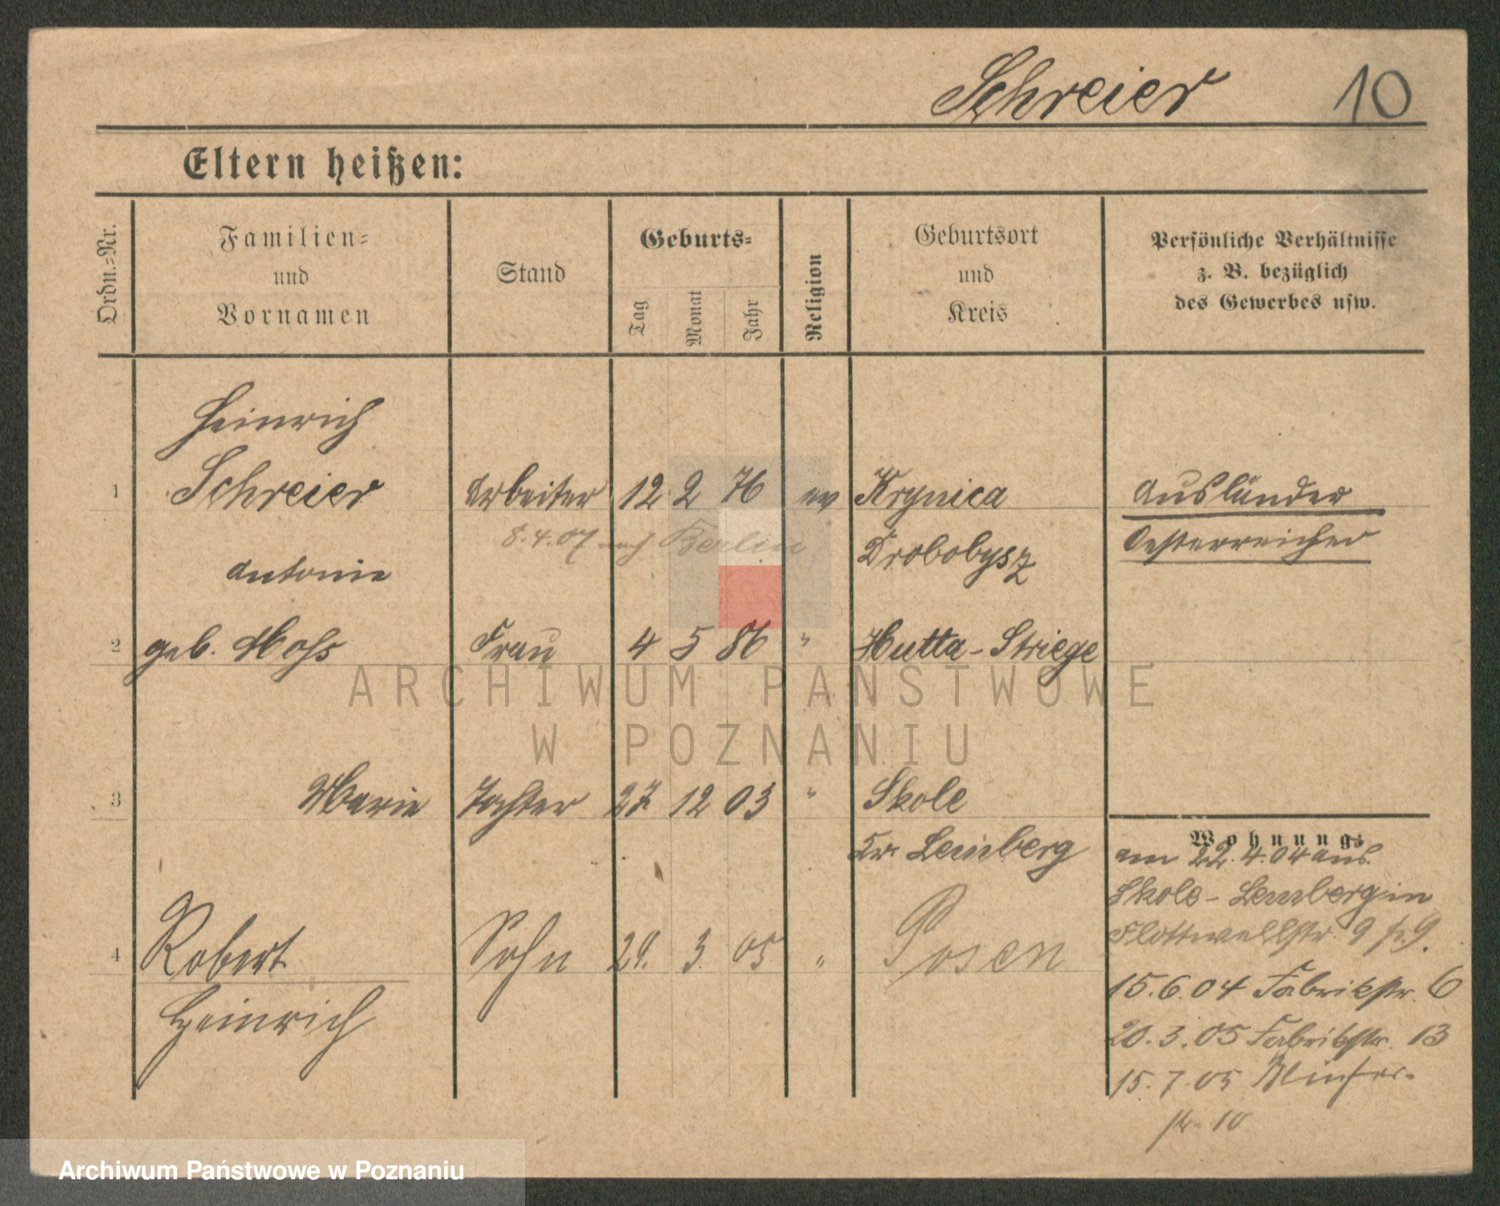 Schreier 10
Eltern heißen:
Ordn.-Nr.
Familien- und Vornamen
Stand
Geburts-
Tag Monat Jahr
Religion
Geburtsort und Kreis
Persönliche Verhältnisse z. B. bezüglich des Gewerbes usw.
Heinrich
1 Schreier Arbeiter 12 2 76 ev Krynica Ausländer
8.4.07 nach Berlin Drobobysz Oesterreicher
Antonie
2 geb. Mohs Frau 4 5 86 " Hutta-Striege
3 Marie Tochter 27. 12 03 " Skole
Kr. Lemberg
Wohnung:
am 22.4.04 aus
Skole-Lemberg in
Flottwellstr. 9 9.
4 Robert Sohn 29. 3. 05 " Posen
Heinrich
15.6.04 Fabrikstr. 6
20.3.05 Fabrikstr. 13
15.7.05
str. 10
ARCHIWUM PAŃSTWOWE
W POZNANIU
Archiwum Państwowe w Poznaniu